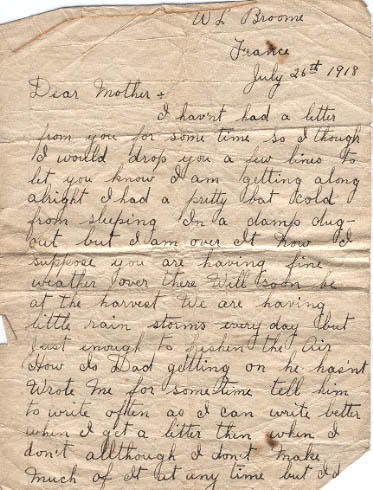 W L Broome
France
July 26th 1918
Dear Mother +
I hav'nt had a letter
from you for some time so I though
I would drop you a few lines to
let you know I am getting along
alright I had a pretty bat cold
from sleeping In a damp dug-
out but I am over It now I
suppose you are having fine
weather over there Will soon be
at the harvest We are having
little rain storms every day but
Just enough to freshen the Air
How Is Dad getting on he has'nt
Wrote Me for some time tell him
to write often as I can write better
when I get a letter then when I
don't allthough I don't Make
Much of It at any time but I'd